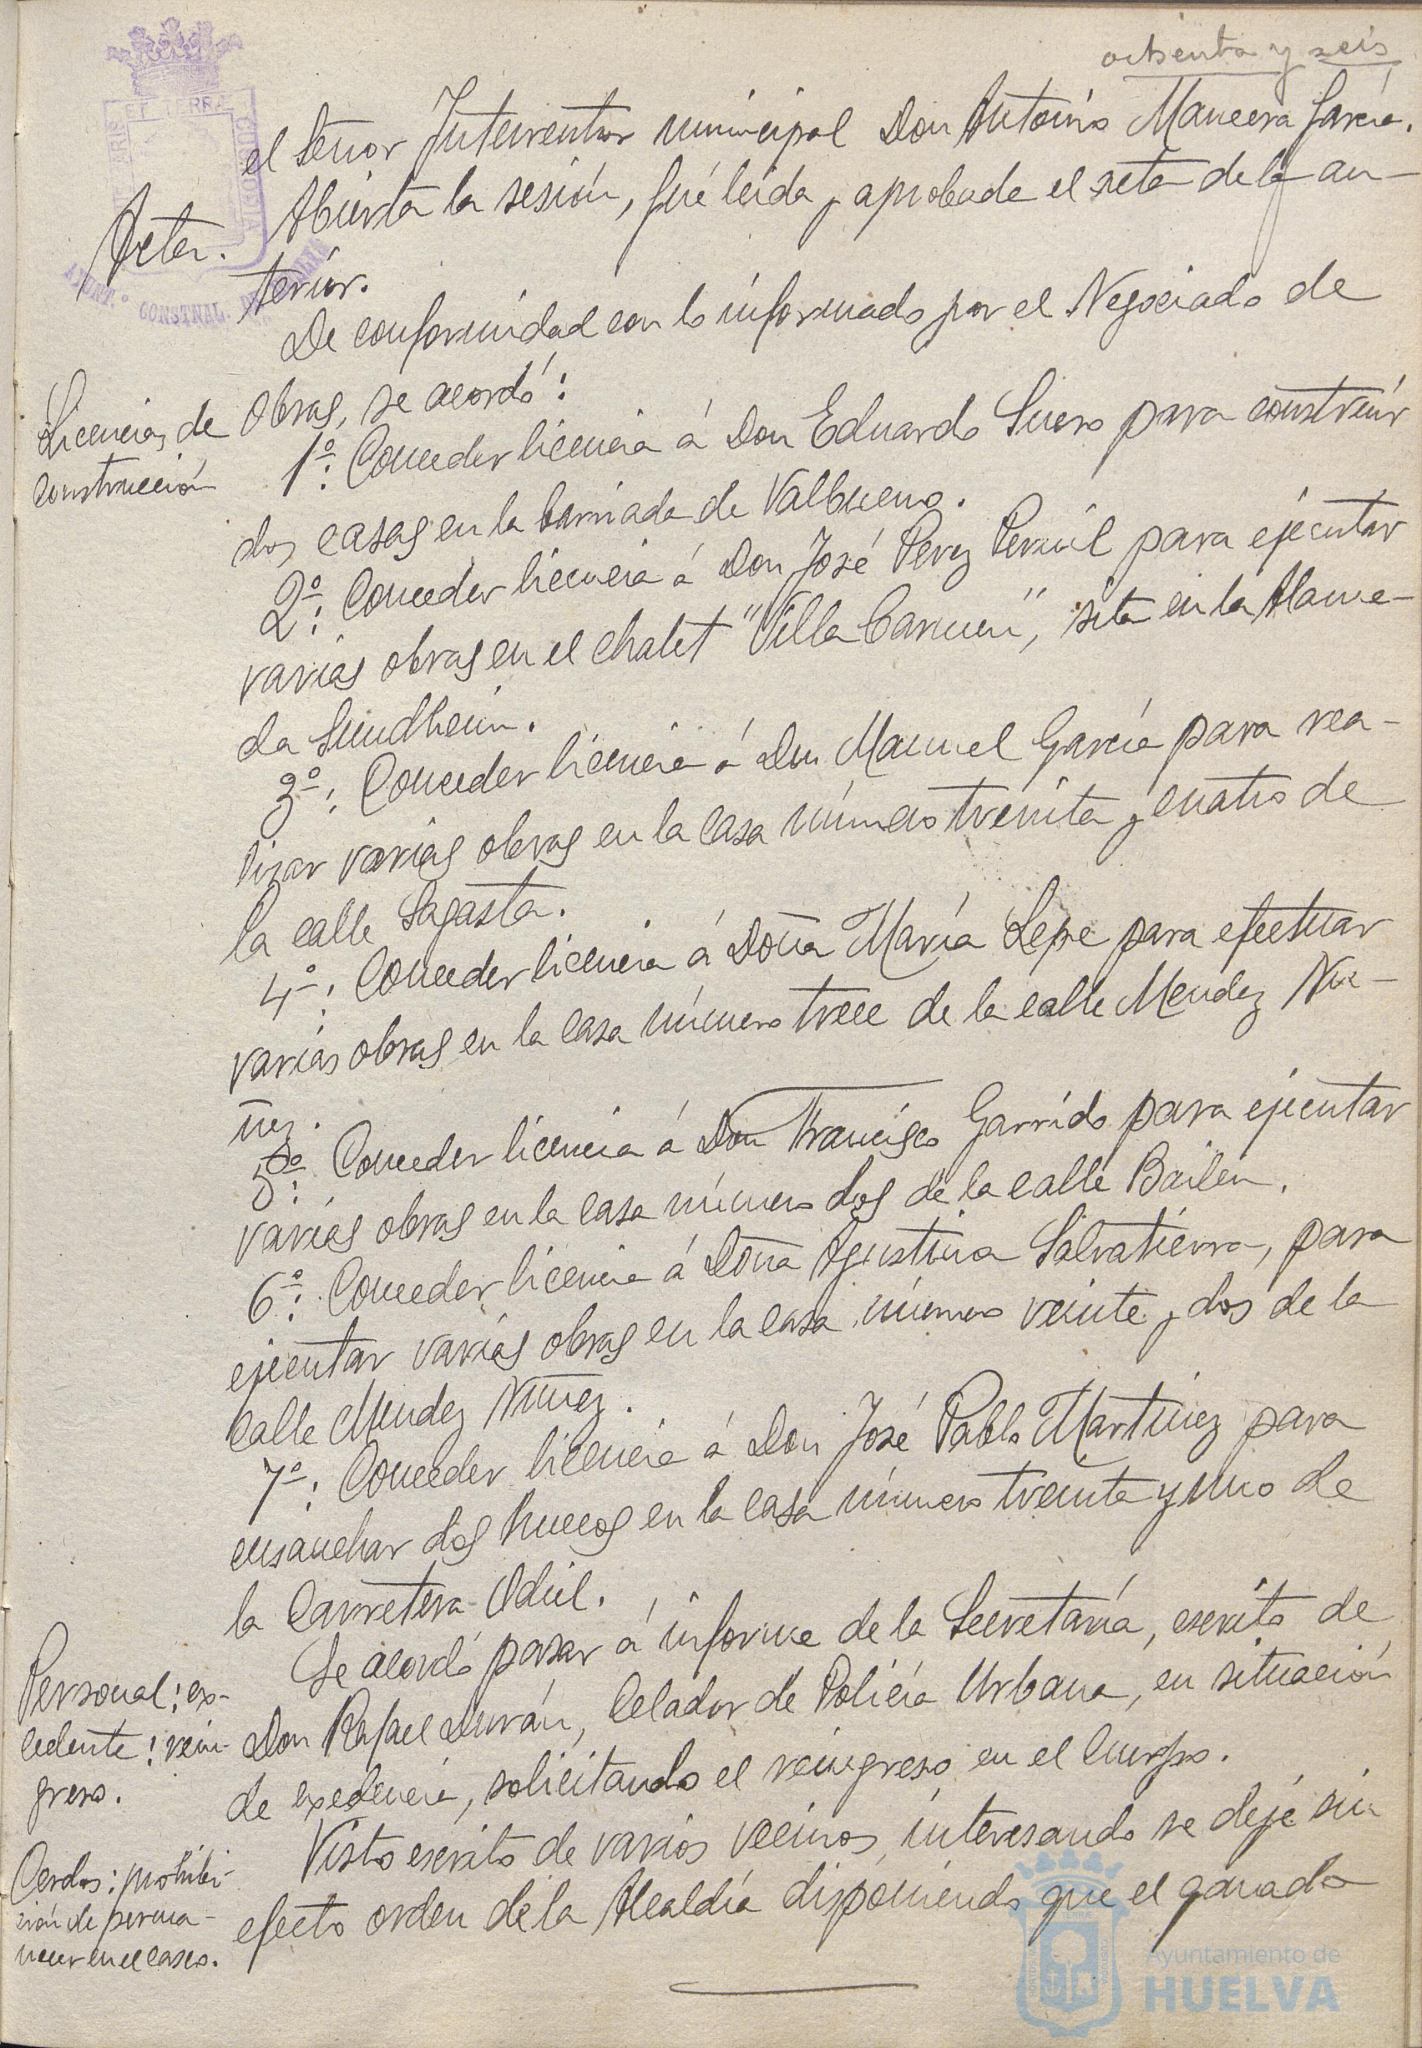 ochenta y seis
el Señor Interventor municipal Don Antonio Mancera García.
Acta.
Abierta la sesión, fué leida y aprobada el acta de la an-
terior.
De conformidad con lo informado por el Negociado de
Licencias de
construcción
Obras, se acordó:
1º: Conceder licencia á Don Eduardo Suero para construir
dos casas en la barriada de Valbueno.
2º: Conceder licencia á Don José Perez Pernil para ejecutar
varias obras en el chalet "Villa Carmen", sita en la Alame-
da Sundheim.
3º: Conceder licencia á Don Manuel García para rea-
lizar varias obras en la casa número treinta y cuatro de
la calle Sagasta.
4º: Conceder licencia á Doña María Lepe para efectuar
varias obras en la casa número trece de la calle Mendez Nu-
ñez.
5º: Conceder licencia á Don Francisco Garrido para ejecutar
varias obras en la casa número dos de la calle Bailen.
6º: Conceder licencia á Doña Agustina Salvatierra, para
ejecutar varias obras en la casa número veinte y dos de la
calle Mendez Nuñez.
7º: Conceder licencia á Don José Pablo Martinez para
ensanchar dos huecos en la casa número treinta y uno de
la Carretera Odiel.
Personal: ex-
cedente: rein-
greso.
Se acordó pasar á informe de la Secretaría, escrito de
Don Rafael Durán, Celador de Policía Urbana, en situación
de excedencia, solicitando el reingreso en el Cuerpo.
Cerdos: prohibi-
ción de perma-
necer en el casco.
Visto escrito de varios vecinos, interesando se deje sin
efecto orden de la Alcaldía disponiendo que el ganado
AYUNT.º CONSTNAL. DE HUELVA
Ayuntamiento de
HUELVA